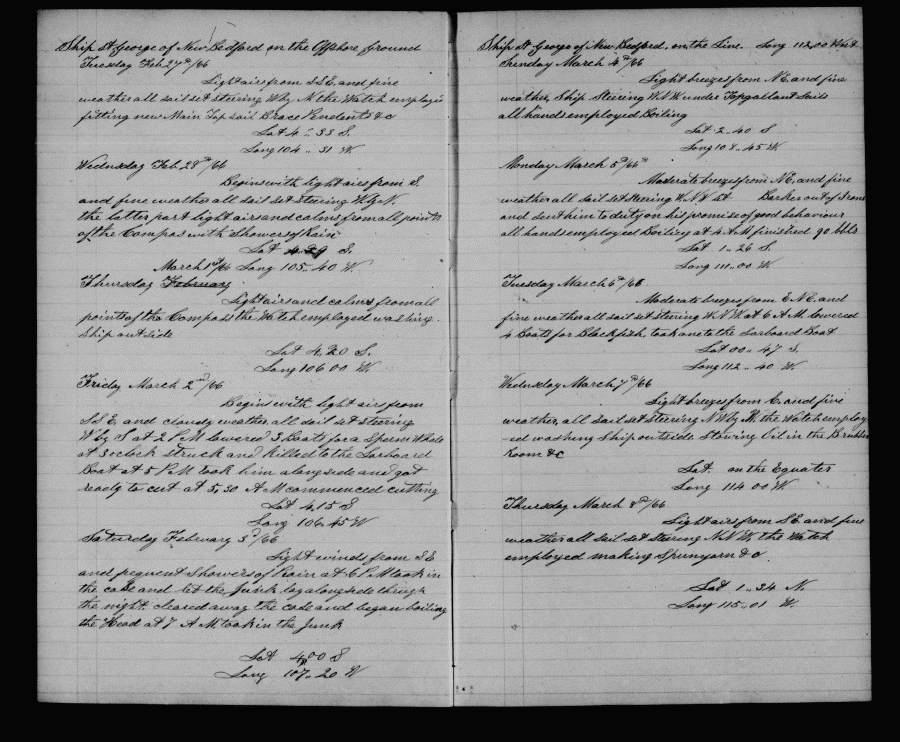 Ship St George of New Bedford on the Offshore Ground
Tuesday Feb 27th/66
Light airs from SSE and fine
weather all sail set steering W by N the Watch employed
fitting new Main Top sail Brace Penebents &c
Lat 4 .. 33 S.
Long 104 .. 31 W
Wednesday Feb 28th/66
Begins with light airs from S.
and fine weather all sail set steering W by N.
the latter part light airs and calms from all points
of the Compas with Showers of Rain
Lat 4.29 S.
March 1st/66 Long 105..40 W.
Thursday February
Light airs and calms from all
points of the Compass the Watch employed washing
Ship out side
Lat 4,20 S.
Long 106 00 W.
Friday March 2nd/66
Begins with light airs from
SSE and cloudy weather, all sail set steering
W by S at 2 PM lowered 3 Boats for a Sperm Whale
at 3 oclock struck and killed to the Larboard
Boat at 5 PM took him along side and got
ready to cut at 5,30 AM commenced cutting
Lat 4,15 S
Long 106,45 W
Saturday February 3d/66
Light winds from SE
and frequent Showers of Rain at 6 PM took in
the case and let the Junk lay alongside through
the night. cleared away the case and began boiling
the Head at 7 AM took in the Junk
Lat 4,00 S
Long 107..20 W
Ship St George of New Bedford, on the Line. Long 112,00 West
Sunday March 4th/66
Light breezes from NE, and fine
weather, Ship Steering WNW under Topgallant Sails
all hands employed Boiling
Lat 2..40 S
Long 108..45 W
Monday March 5th/66
Moderate breezes from NE, and fine
weather all sail set steering WNW Let Barker out of Irons
and sent him to duty on his promise of good behaviour
all hands employed Boiling at 4 AM finished 90 bbls
Lat 1..26 S.
Long 111..00 W.
Tuesday March 6th/66
Moderate breezes from ENE, and
fine weather all sail set steering WNW at 6 AM lowered
4 Boats for Blackfish, took one to the Larboard Boat
Lat 00..47 S.
Long 112..40 W.
Wednesday March, 7th/66
Light breezes from E. and fine
weather, all sail set steering NW by W, the Watch employ-
-ed washing Ship outside Stowing Oil in the Blubber
room &c
Lat. on the Equater
Long 114 00 W.
Thursday March 8th/66
Light airs from SE and fine
weather all sail set steering NNW, the Watch
employed making Spunyarn &c
Lat 1..34 N.
Long 115..01 W.